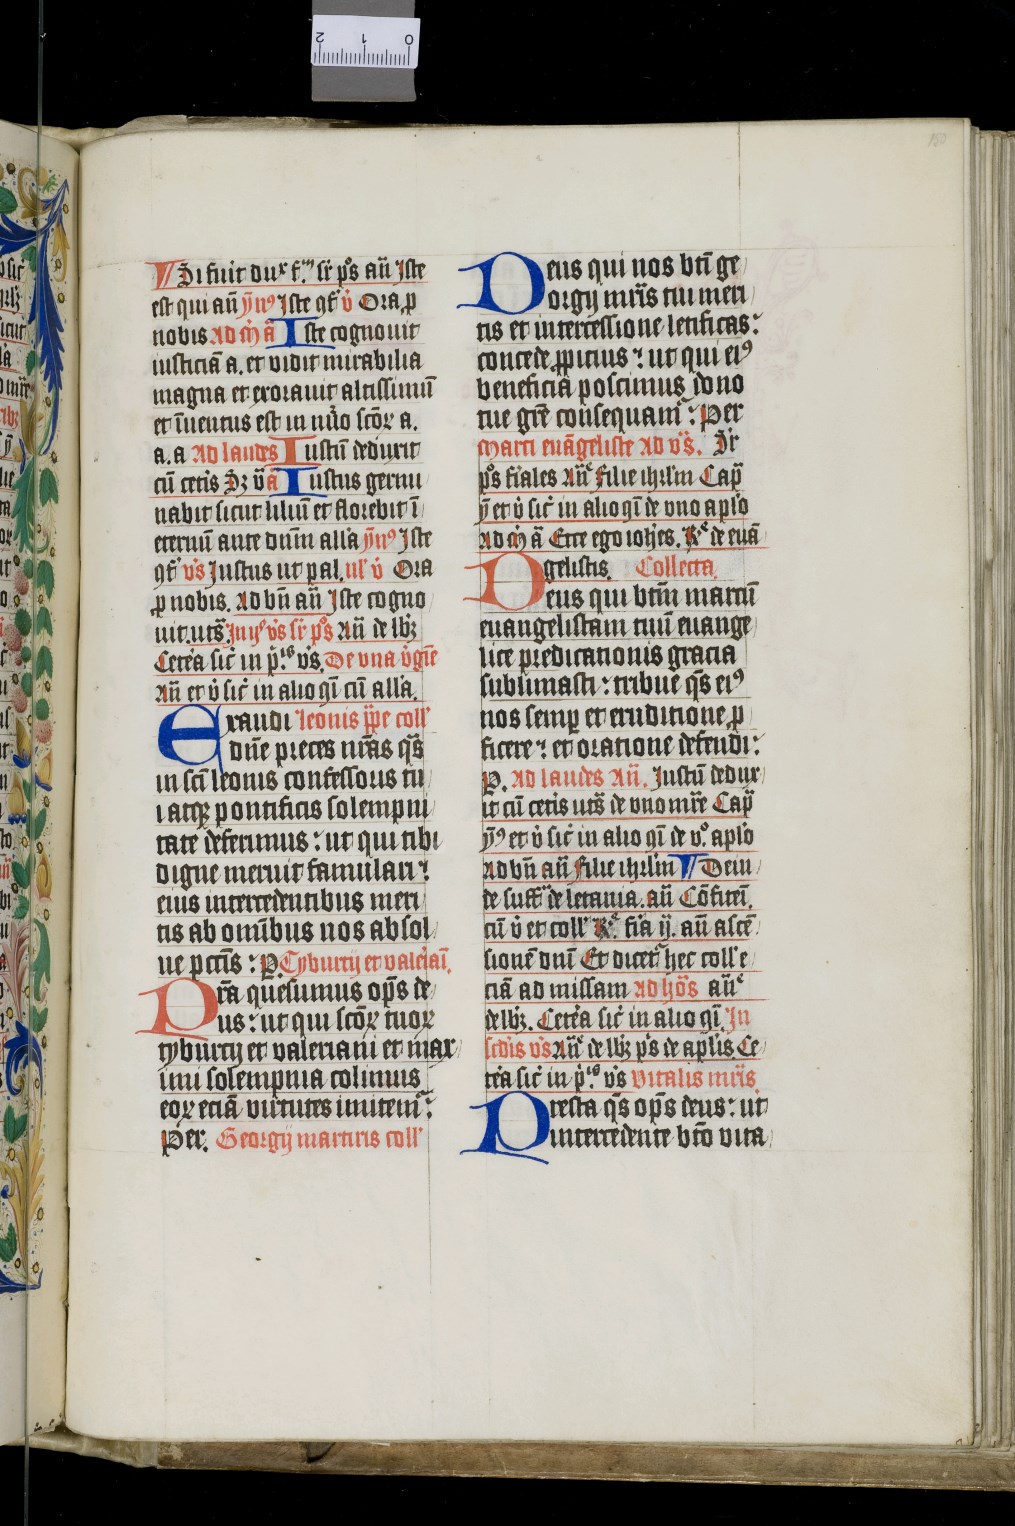 Si fuit dux f. sr ps añ Iste
est qui añ ỹnꝰ Iste qf̃ v̉ Ora ꝓ
nobis Ad m̃ ã Iste cognouit
iusticiã a. et vidit mirabilia
magna et exorauit altissimũ
et ĩuentus est in nũo sc̃oꝝ a.
a. a Ad laudes Iustũ deduxit
cũ cetis v̉ ã Iustus germi
nabit sicut liliũ et florebit ĩ
eternũ ante dñm all'a ỹnꝰ Iste
qf̃ vs̉ Iustus ut pal. ul' v̉ Ora
ꝓ nobis. Ad bñ añ Iste cogno
uit. uts̃ In ijs vs̉ sr ps Añ de lbꝫ
Cetẽa sic̃ in p̃is vs̉. De vna vg̉ie
Añ et v̉ sic̃ in alio qĩ cũ all'a.
Exaudi leonis pp̃e coll'
dñe preces nr̃as qs̃
in sc̃i leonis confessoris tu
i atqꝫ pontificis solempni
tate deferimus : ut qui tibi
digne meruit famulari :
eius intercedentibus meri
tis ab omĩbus nos absol
ue pctĩs : P. Cyburtij et valeriãi.
Prã quesumus ops̃ de
us : ut qui scõꝝ tuoꝝ
tyburtij et valeriani et max
imi solempnia colimus
eoꝝ eciã virtutes imitem̃ :
Per. Georgij martiris coll'
Deus qui nos btĩ ge
orgij mr̃is tui meri
tis et intercessione letificas :
concede ꝓpicius : ut qui eiꝰ
beneficia poscimus dono
tue gr̃e consequam̃ : Per
Marci euãgeliste Ad vs̉. Sr
ps̃ fiales Añ Filie ihrl'm Cap̃
ỹ et v̉ sic̃ in alio qĩ de vno apl'o
Ad m̃ ã Ecce ego ioh̃es. R̃ de euã
gelistis. Collecta.
Deus qui btm̃ marcũ
euangelistam tuũ euange
lice predicationis gracia
sublimasti : tribue qs̃ eiꝰ
nos semꝑ et eruditione ꝓ
ficere : et oratione defendi :
P. Ad laudes Añ. Iustũ dedux
it cũ cetis uts̃ de vno mr̃e Cap̃
ỹꝰ et v̉ sic̃ in alio qĩ de vo apl'o
Ad bñ añ Filie ihrl'm Dein
de suff̃ de letania. añ Cõfitẽi
cũ v̉ et coll' R̃ fia ij. añ ascẽ
sionẽ dnĩ Et dicet̃ hec coll'e
ciã ad missam Ad hõs añ
de lbꝫ. Cetẽa sic̃ in alio qĩ In
scdis vs̉ Añ de lbꝫ ps̃ de apl'is Ce
tẽa sic̃ in p̃is vs̉ Vitalis mr̃is.
Presta qs̃ ops̃ deus : ut
intercedente btõ vita